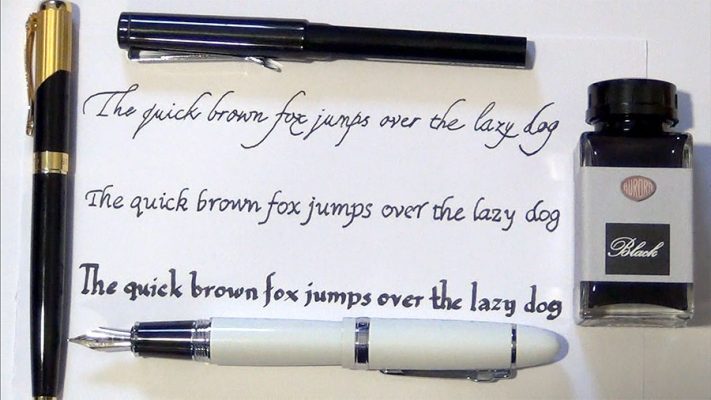 The quick brown fox jumps over the lazy dog
The quick brown fox jumps over the lazy dog
The quick brown fox jumps over the lazy dog
AURORA
Black